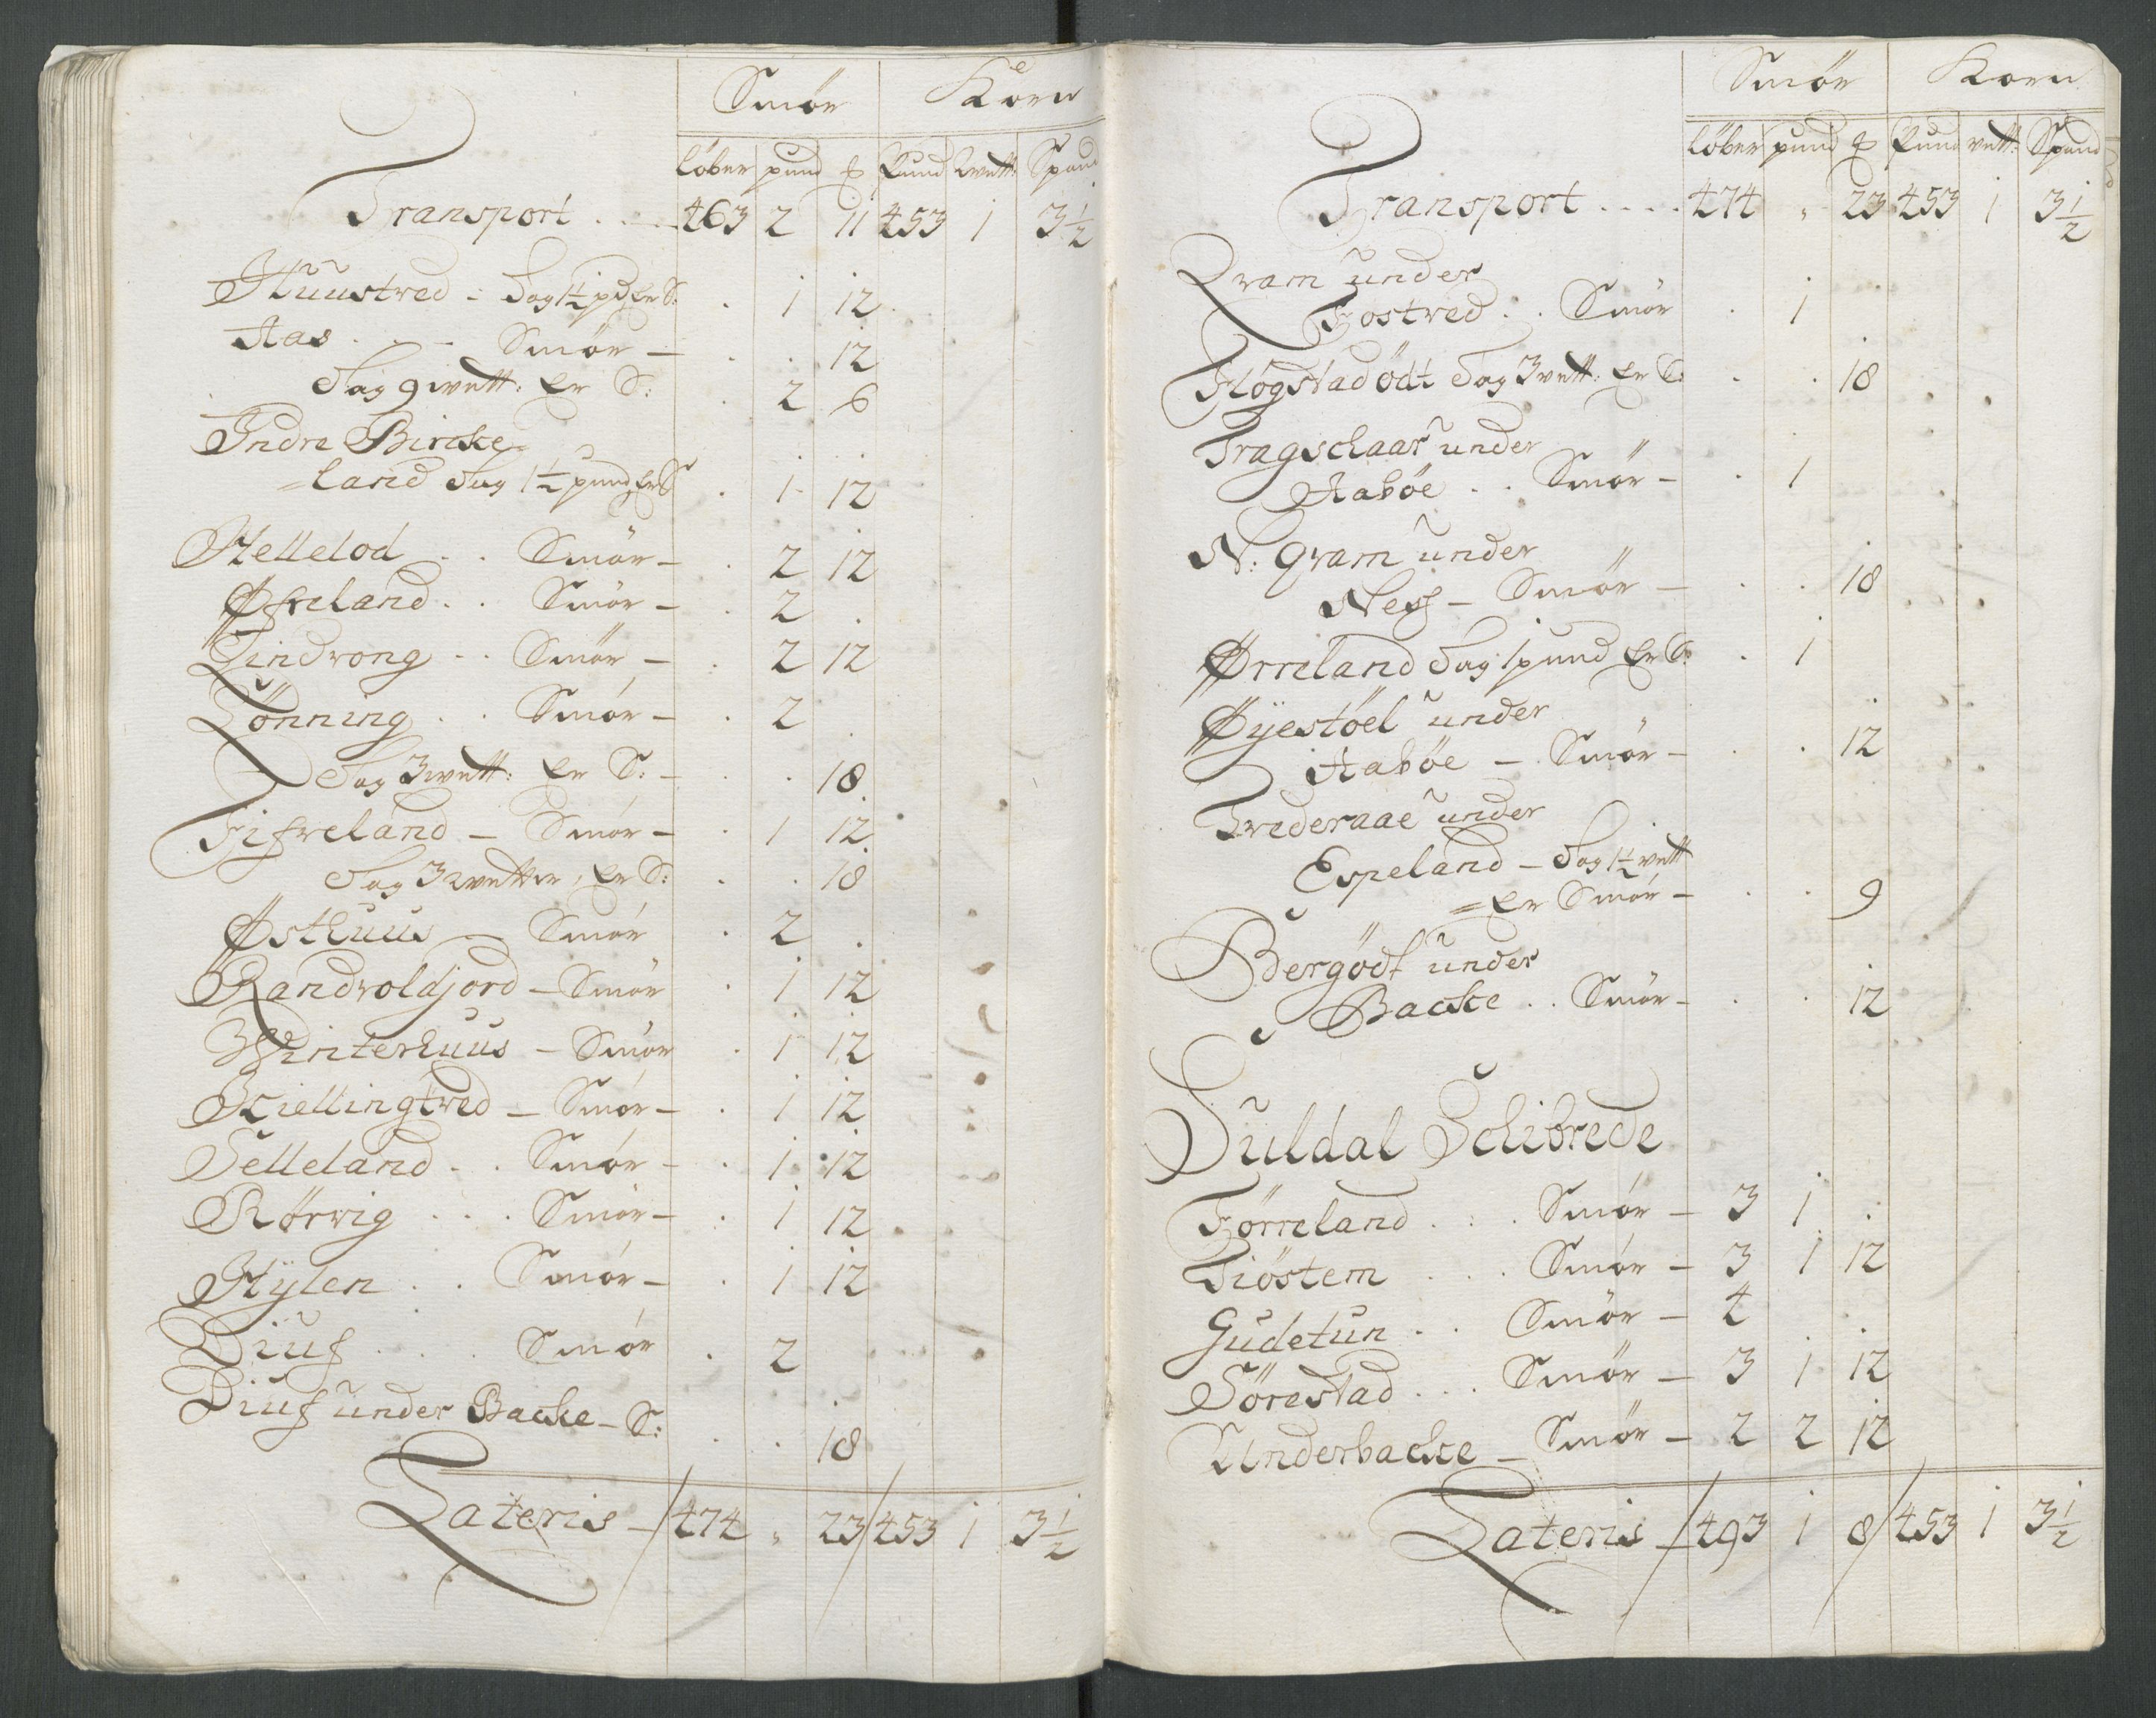 Smör Korn
löber pund ℔ Pund wett: Spand
Transport . . . 463 2 11 453 1 3½
Huustred - Sag 1½ pd Er S: . 1 12
Aas . . - Smör - . . 12
Sag 9 wett: Er S: . 2 6
Indre Bircke
=land Sag 1½ pund Er S . 1 12
Hellelod . . Smör - . 2 12
Øfreland . . Smör - . 2 .
Lindvong . . Smör - . 2 12
Lönning . . Smör - . 2 .
Sag 3 wett: Er S: - . . 18
Fifreland - Smör - . 1 12
Sag 3 wetter, Er S: . . 18
Østhuus - Smör . 2 .
Randvoldjord - Smör . 1 12
Winterhuus - Smör . 1 12
Kiellingtred - Smör - . 1 12
Selleland . . Smör - . 1 12
Rörvig . . . Smör - . 1 12
Hÿlen . . Smör - . 1 12
Diuf . . . Smör . 2
Diuf under Backe - S: . . 18
Lateris - 474 " 23 453 1 3½
Smör Korn
löber pund ℔ Pund vett: Spand
Transport . . . . 474 " 23 453 1 3½
Qvam under
Fostred . . Smör . 1
Högstadödt Sag 3 vett: Er S: . . 18
Tragschaar under
Aaböe . . Smör - . 1
N: Qvam under
Ness - Smör - . . 18
Ørreland Sag 1 pund Er S: . 1
Øÿestöel under
Aaböe - Smör - . . 12
Trideraae under
Espeland - Sag 1½ vett
=Er Smör - . . 9
Bergödt under
Backe . . Smör - . . 12
Suldal Schibrede
Förreland . . . Smör - 3 1 .
Tiöstem . . . Smör - 3 1 12
Gudetun . . Smör - 4 . .
Sörestad . . . Smör - 3 1 12
Underbacke - Smör - 2 2 12
Lateris - 493 1 8 453 1 3½